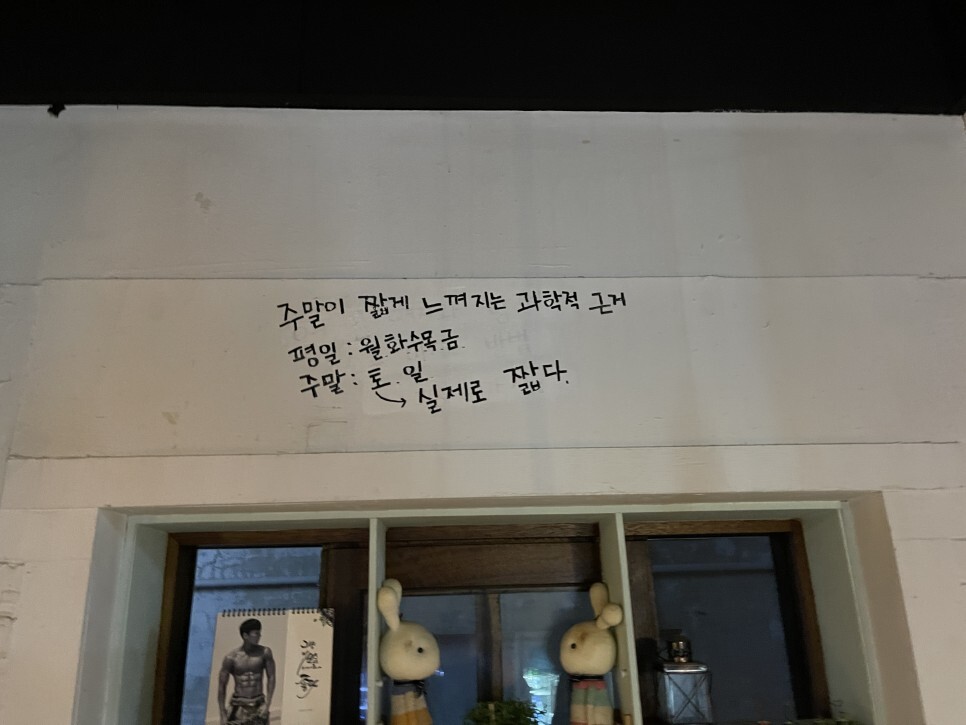 주말이 짧게 느껴지는 과학적 근거
평일 : 월화수목금
주말 : 토. 일
→ 실제로 짧다.